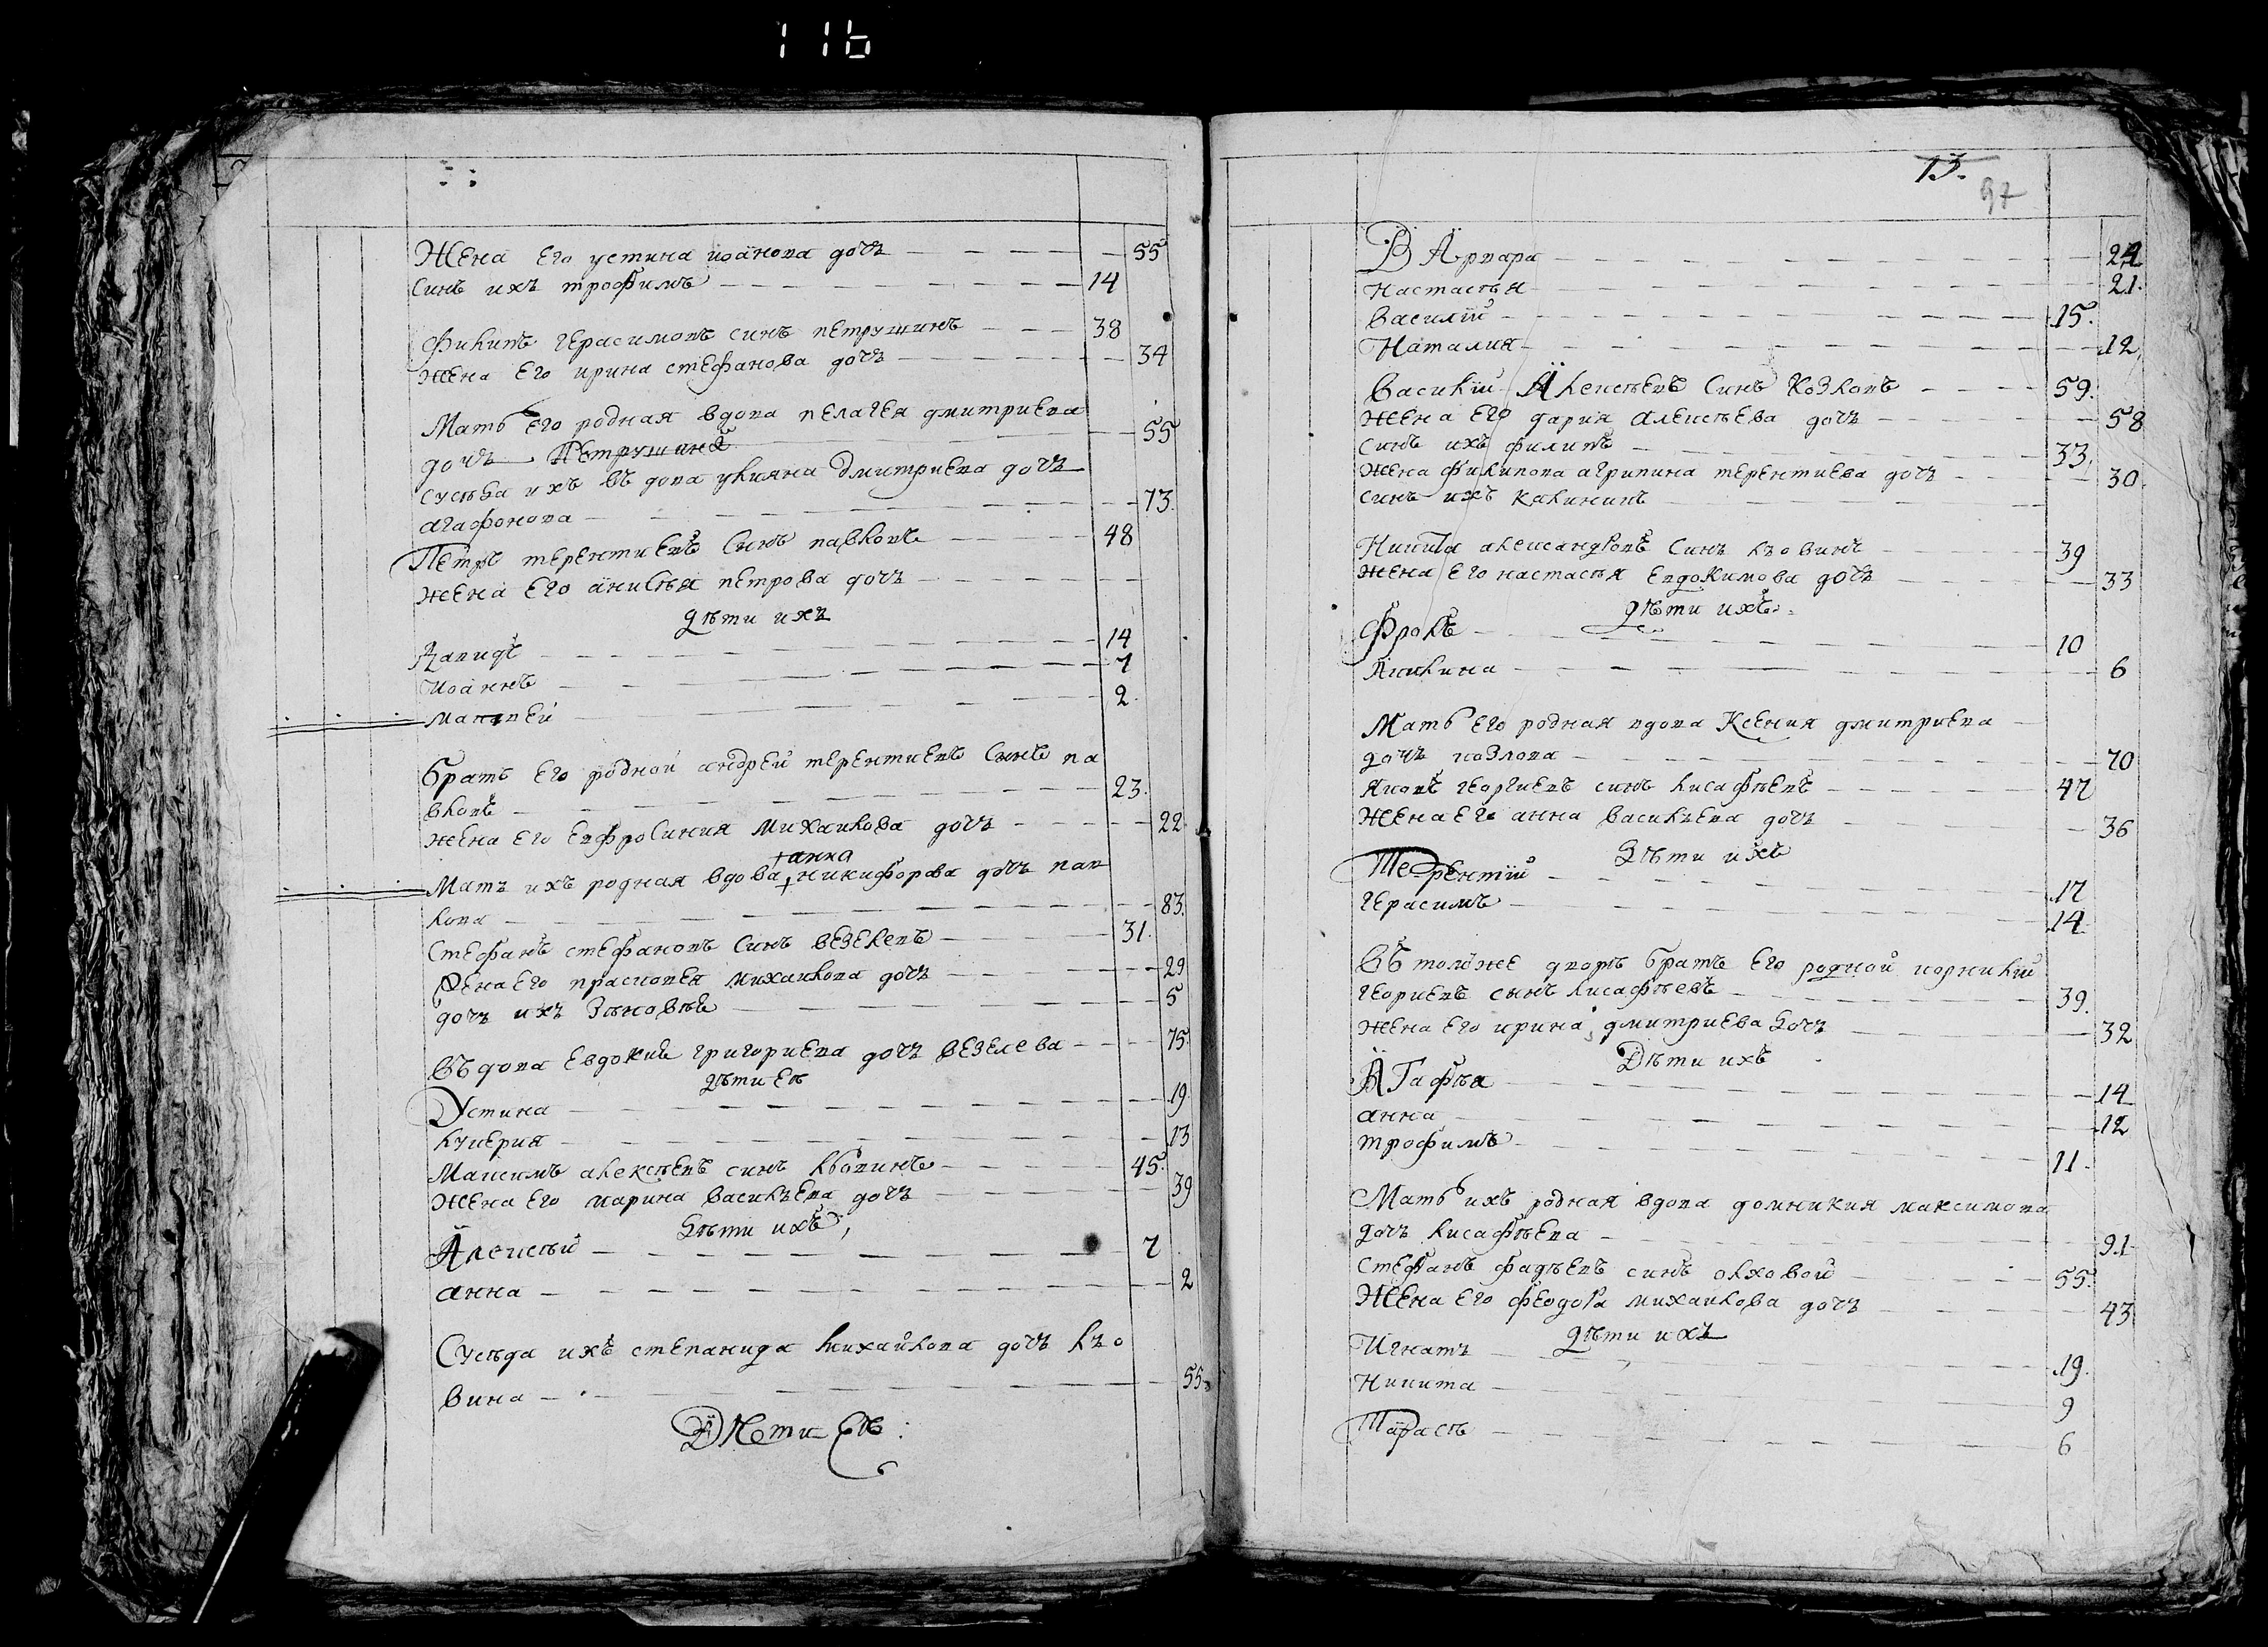 116
Жена его устина иоанова дочъ — 55
Синъ ихъ трофимъ — 14
Филипъ герасимовъ синъ петрушинъ — 38
жена его ирина стефанова дочъ — 34
Мать его родная вдова пелагея дмитриева
дочъ Петрушина — 55
сусѣда ихъ въдова улияна дмитриева дочъ
агафонова — 73.
Петръ терентиевъ Синъ павловъ — 48
жена его анисѣя петрова дочъ —
дѣти ихъ
Давидъ — 14
Иоаннъ — 7
Матвей — 2.
братъ его родной андрей терентиевъ Синъ па
вловъ — 23.
жена его евфросиния михайлова дочъ — 22
анна
Матъ ихъ родная вдова никифорова дочъ пав
лова — 83.
Стефанъ стефановъ Синъ везелевъ — 31.
Жена его прасковея михайлова дочъ — 29
дочъ ихъ Зѣновѣе — 5
Въдова евдокие григориева дочъ везелева — 75
дѣти еѣ
Устина — 19
лукерия — 13
Максимъ алексѣевъ синъ лвовинъ — 45.
жена его марина василъева дочъ — 39
дѣти ихъ
Алексѣй — 7
анна — 2
Сусѣда ихъ степанида михайлова дочъ лъо
вина — 55
Дѣти еѣ:
13.
97
Варвара — 24
Настасѣя — 21.
василий — 15.
Наталия — 12
Василий Алексѣевъ Синъ Козловъ — 59.
жена его дария алексѣева дочъ — 58
синъ ихъ филипъ — 33
жена филипова агрипина терентиева дочъ — 30
синъ ихъ калиникъ —
Никита александровъ Синъ лъовинъ — 39
жена его настасѣя евдокимова дочъ — 33
дѣти ихъ
Фролъ — 10
Акилина — 6
Мать его родная вдова Ксения дмитриева
дочъ козлова — 70
яковъ георгиевъ синъ лисафѣевъ — 47
жена его анна василъева дочъ — 36
дѣти ихъ
Терентий — 17
герасимъ — 14
Въ томже дворѣ братъ его родной корнилий
георгиевъ сынъ лисафѣевъ — 39.
жена его ирина дмитриева дочъ — 32
Дѣти ихъ
Агафѣя — 14
анна — 12
трофимъ — 11.
Мать ихъ родная вдова домникия максимова
дочъ лисафѣева — 91
стефанъ фадѣевъ синъ олховой — 55.
Жена его феодора михайлова дочъ — 43
дѣти ихъ
Игнатъ — 19.
Никита — 9
Тарасъ — 6